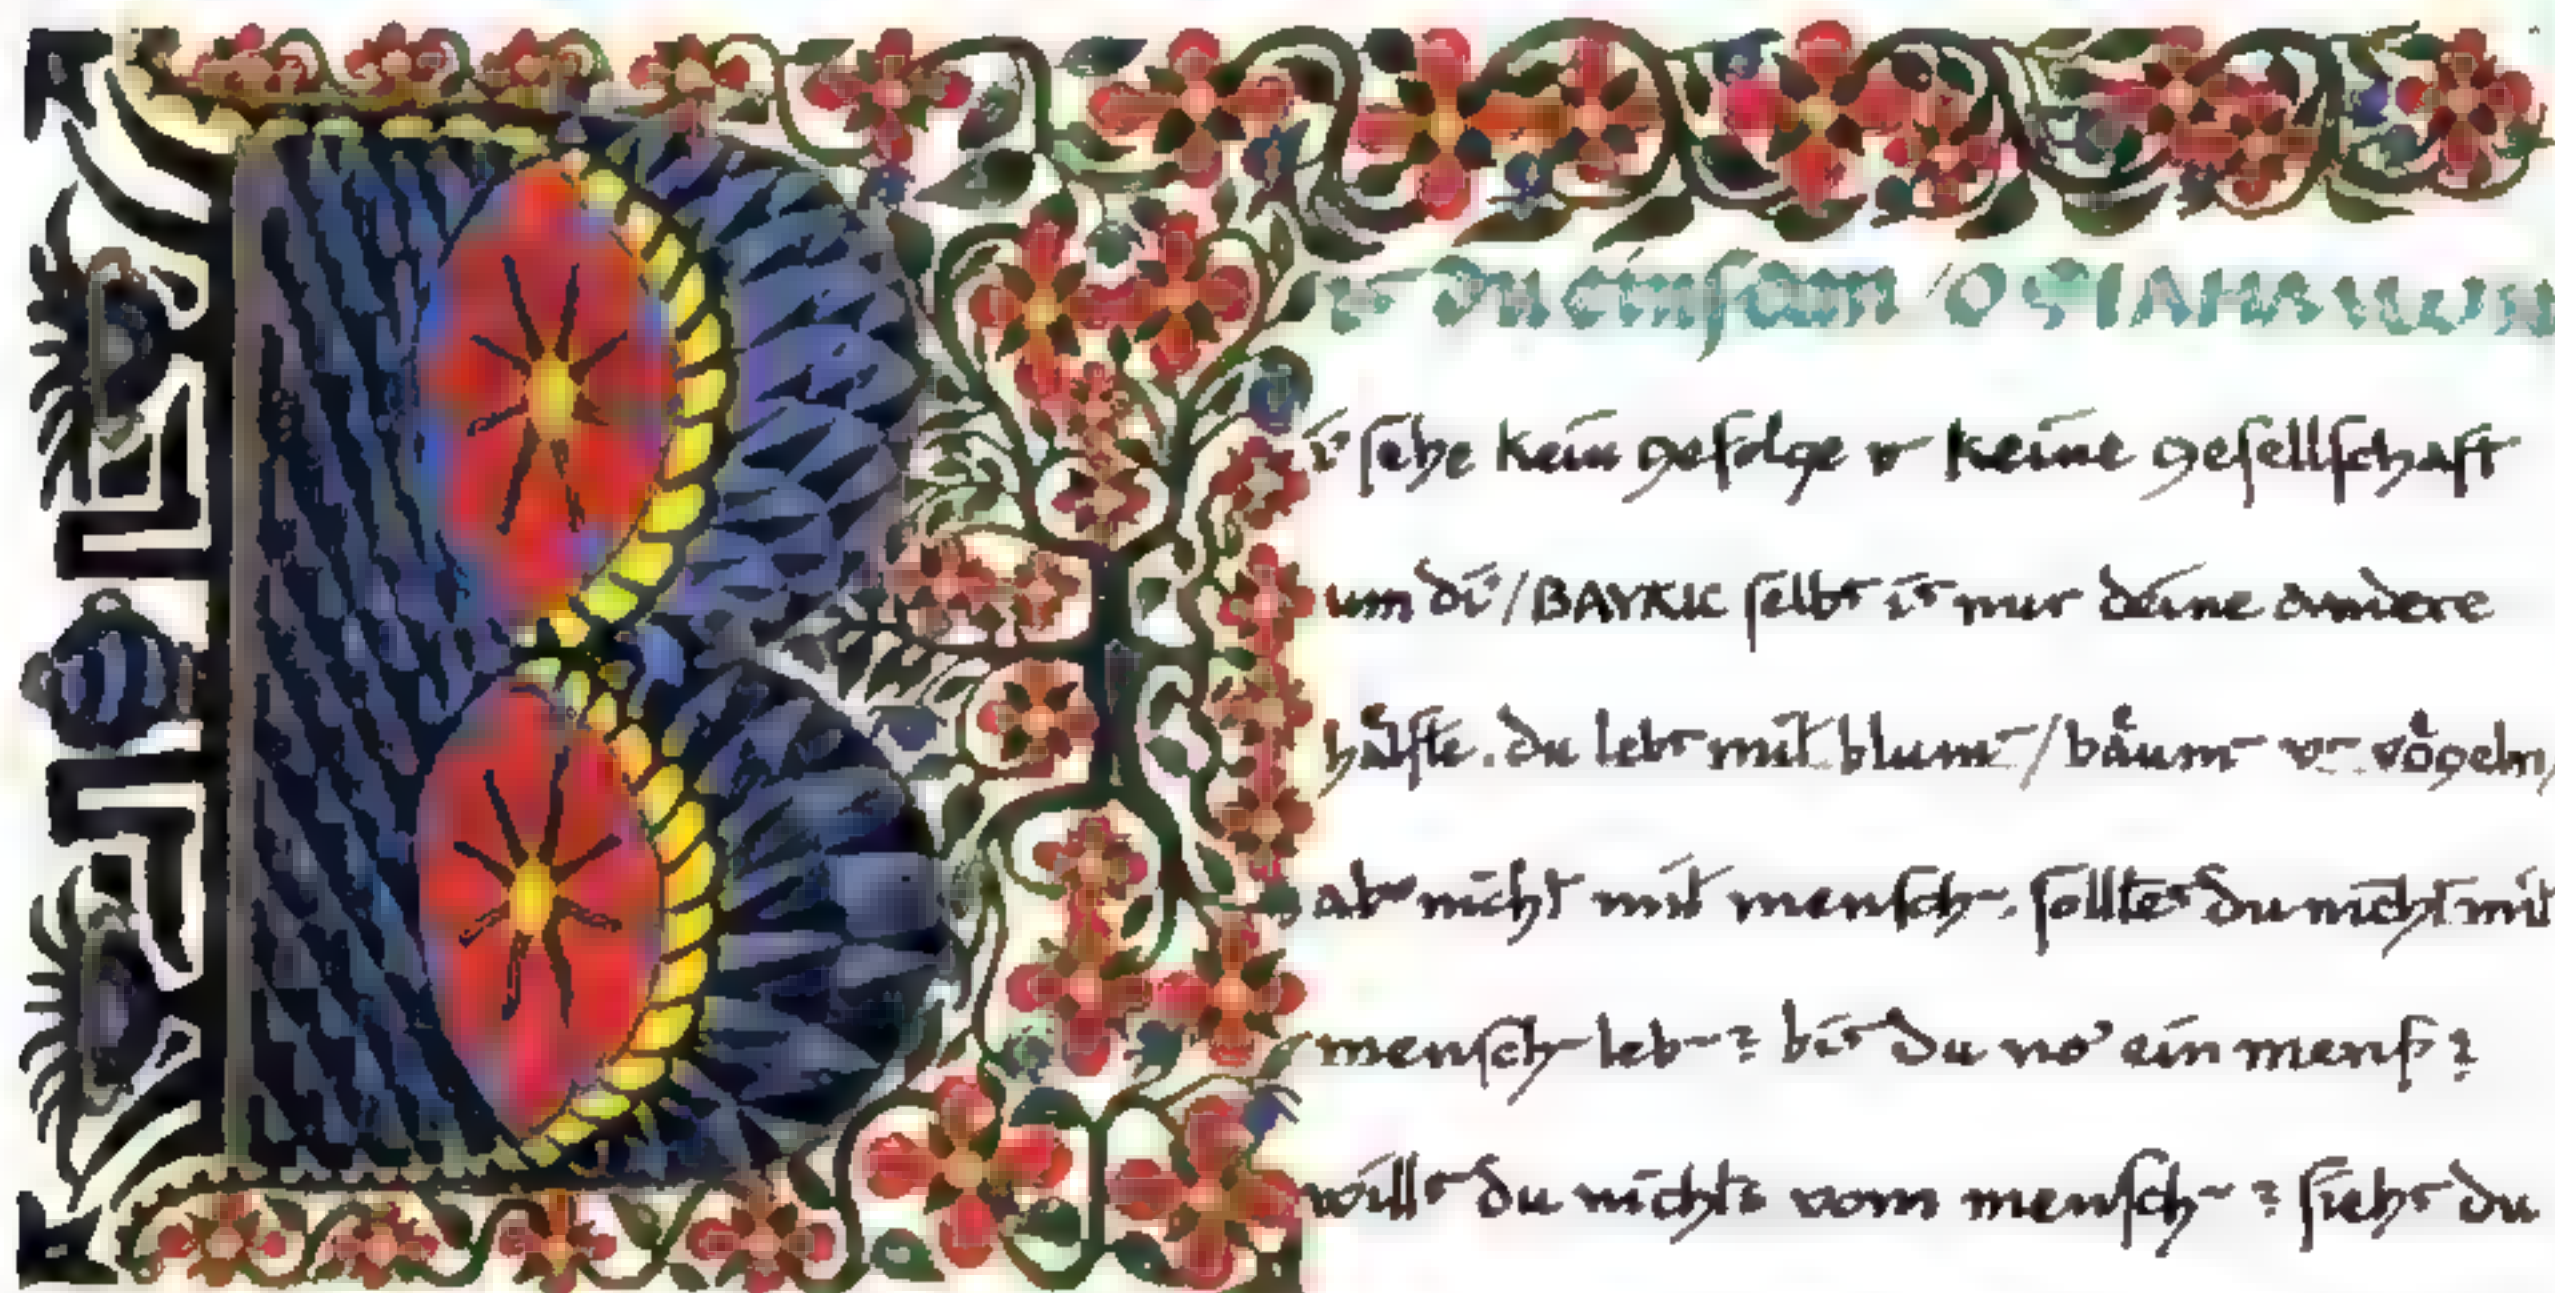 B
is du einsam / O
i' sehe kein gefolge v keine gesellschaft
um di' / BAYKIC selbs is nur deine andere
hålfte. du lebs mit blum / båum v vögeln,
ab nicht mit mensch. solltes du nicht mit
mensch leb? bis du no' ein mensch?
wills du nichts vom mensch? siehs du